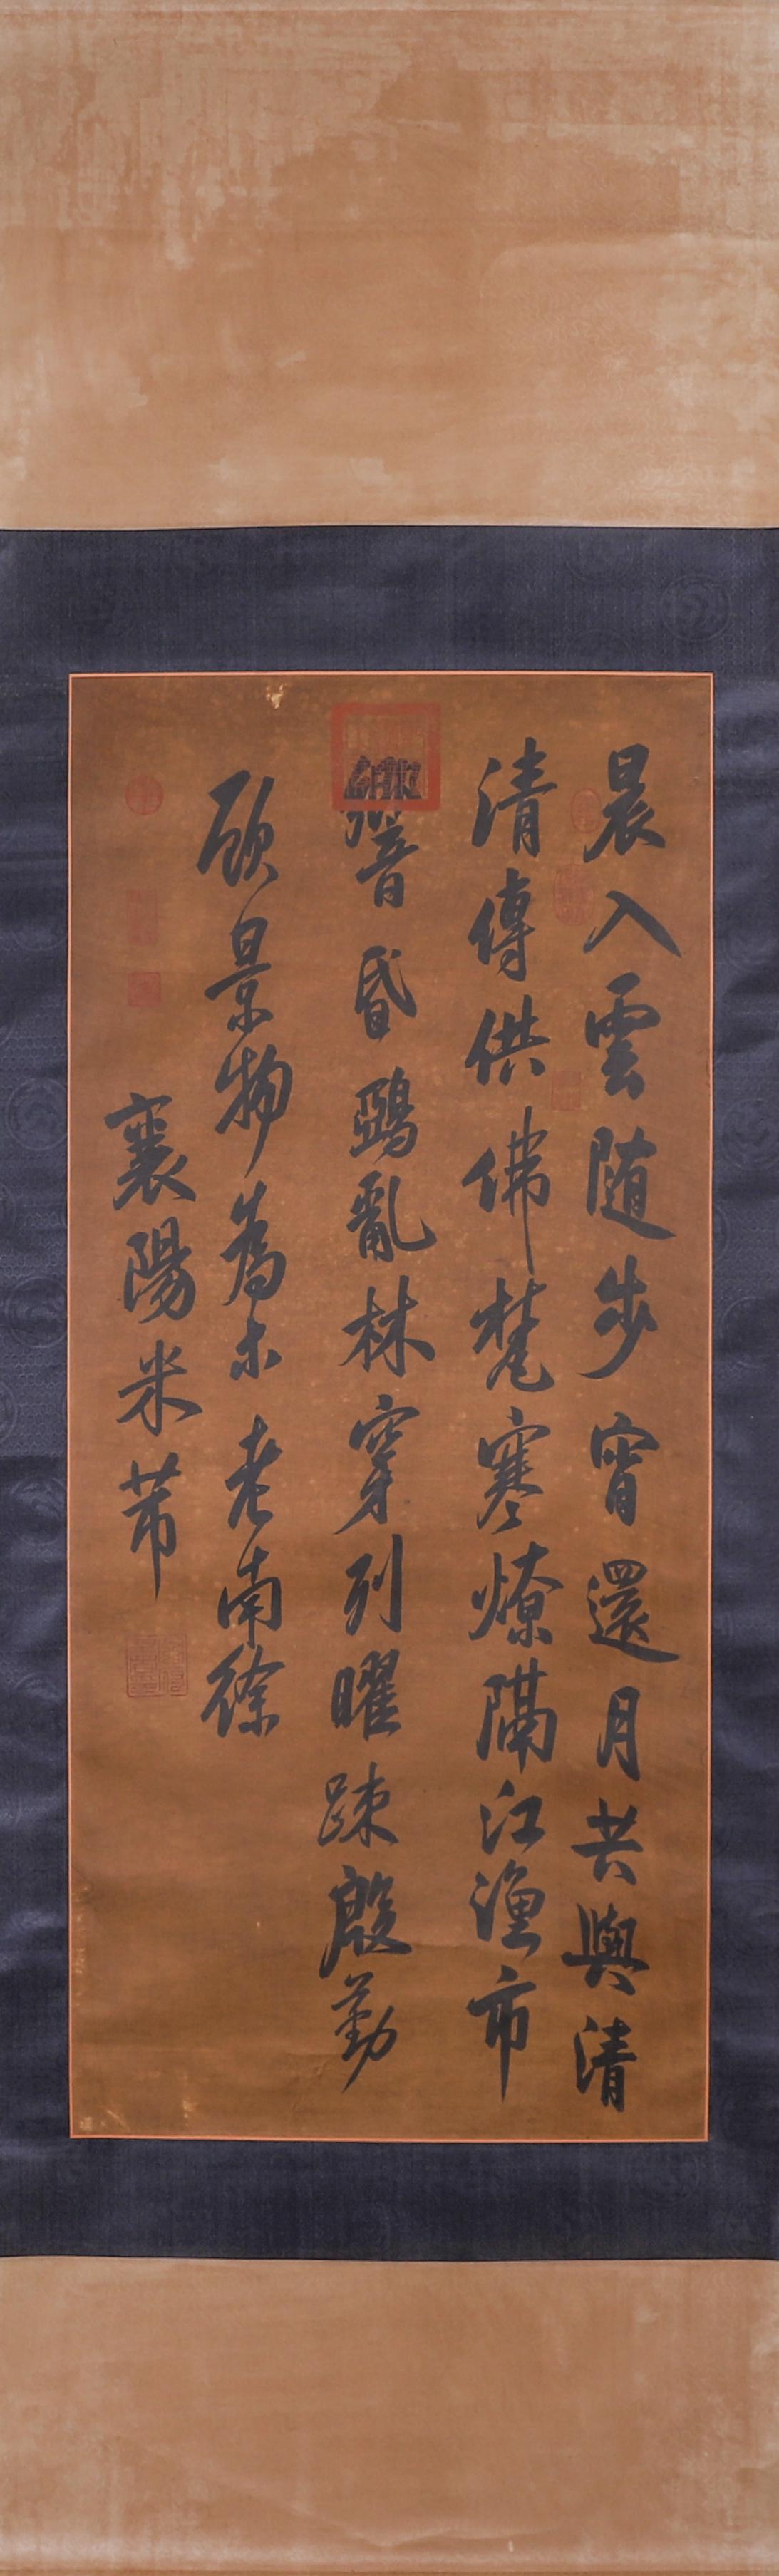 晨入雲随步宵還月共輿清
清傳供佛梵寒燎隔江漁市
響昏鵶亂林穿列曜踈殷勤
顧景物為尔老南徐
襄陽米芾